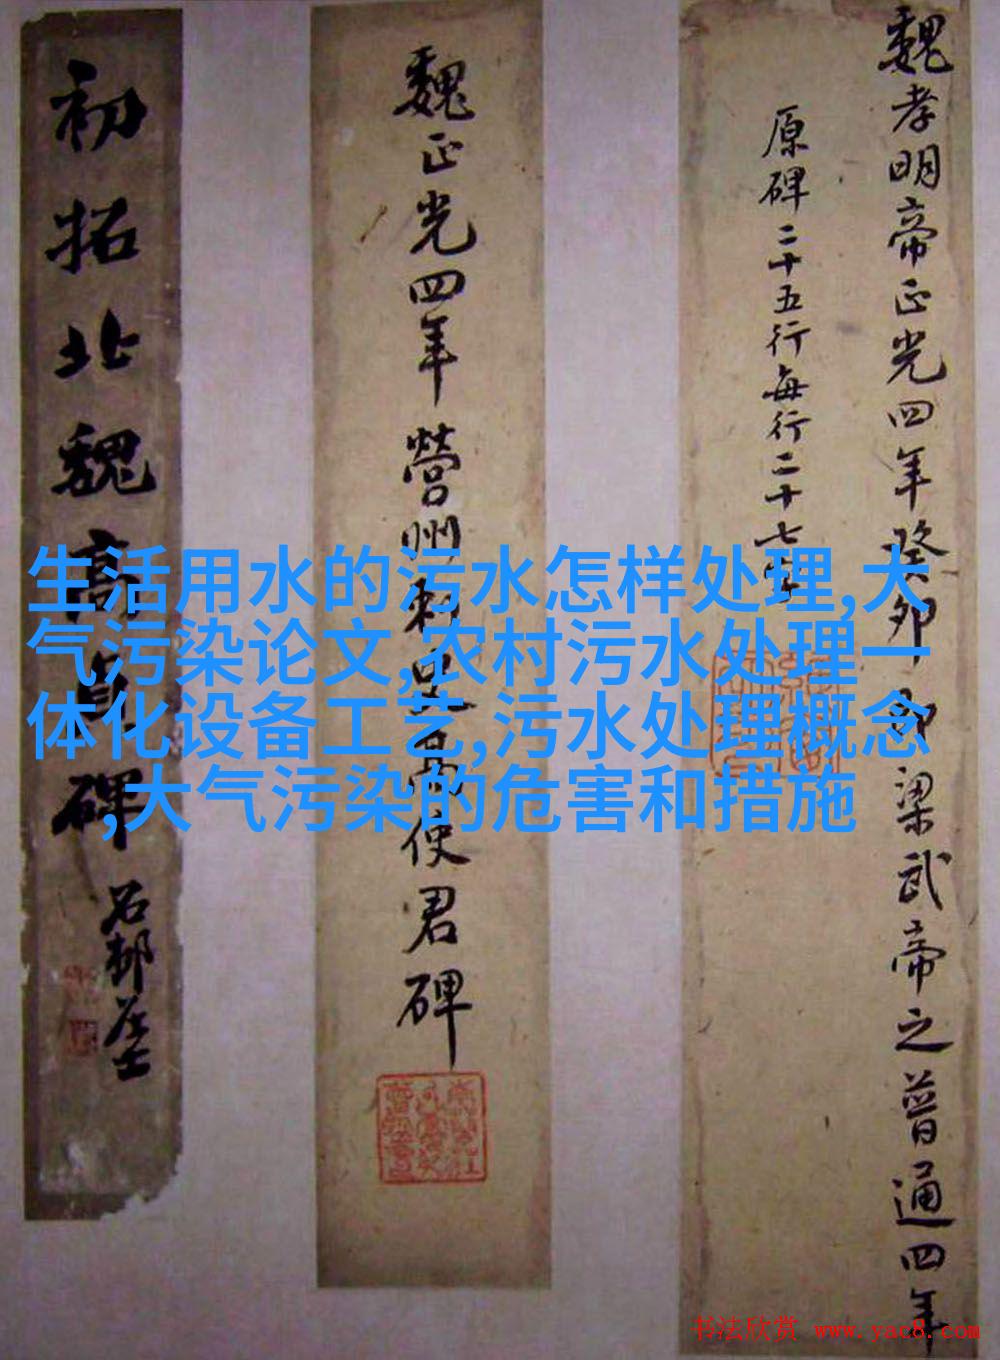 魏孝明帝正光四年癸卯即梁武帝之普通四年
原碑二十五行每行二十七字
魏正光四年營州刺史高貞使君碑
初拓北魏高貞碑
生活用水的污水怎样处理,大
气污染论文,农村污水处理一
体化设备工艺,污水处理概念
,大气污染的危害和措施
书法欣赏 www.yac8.com